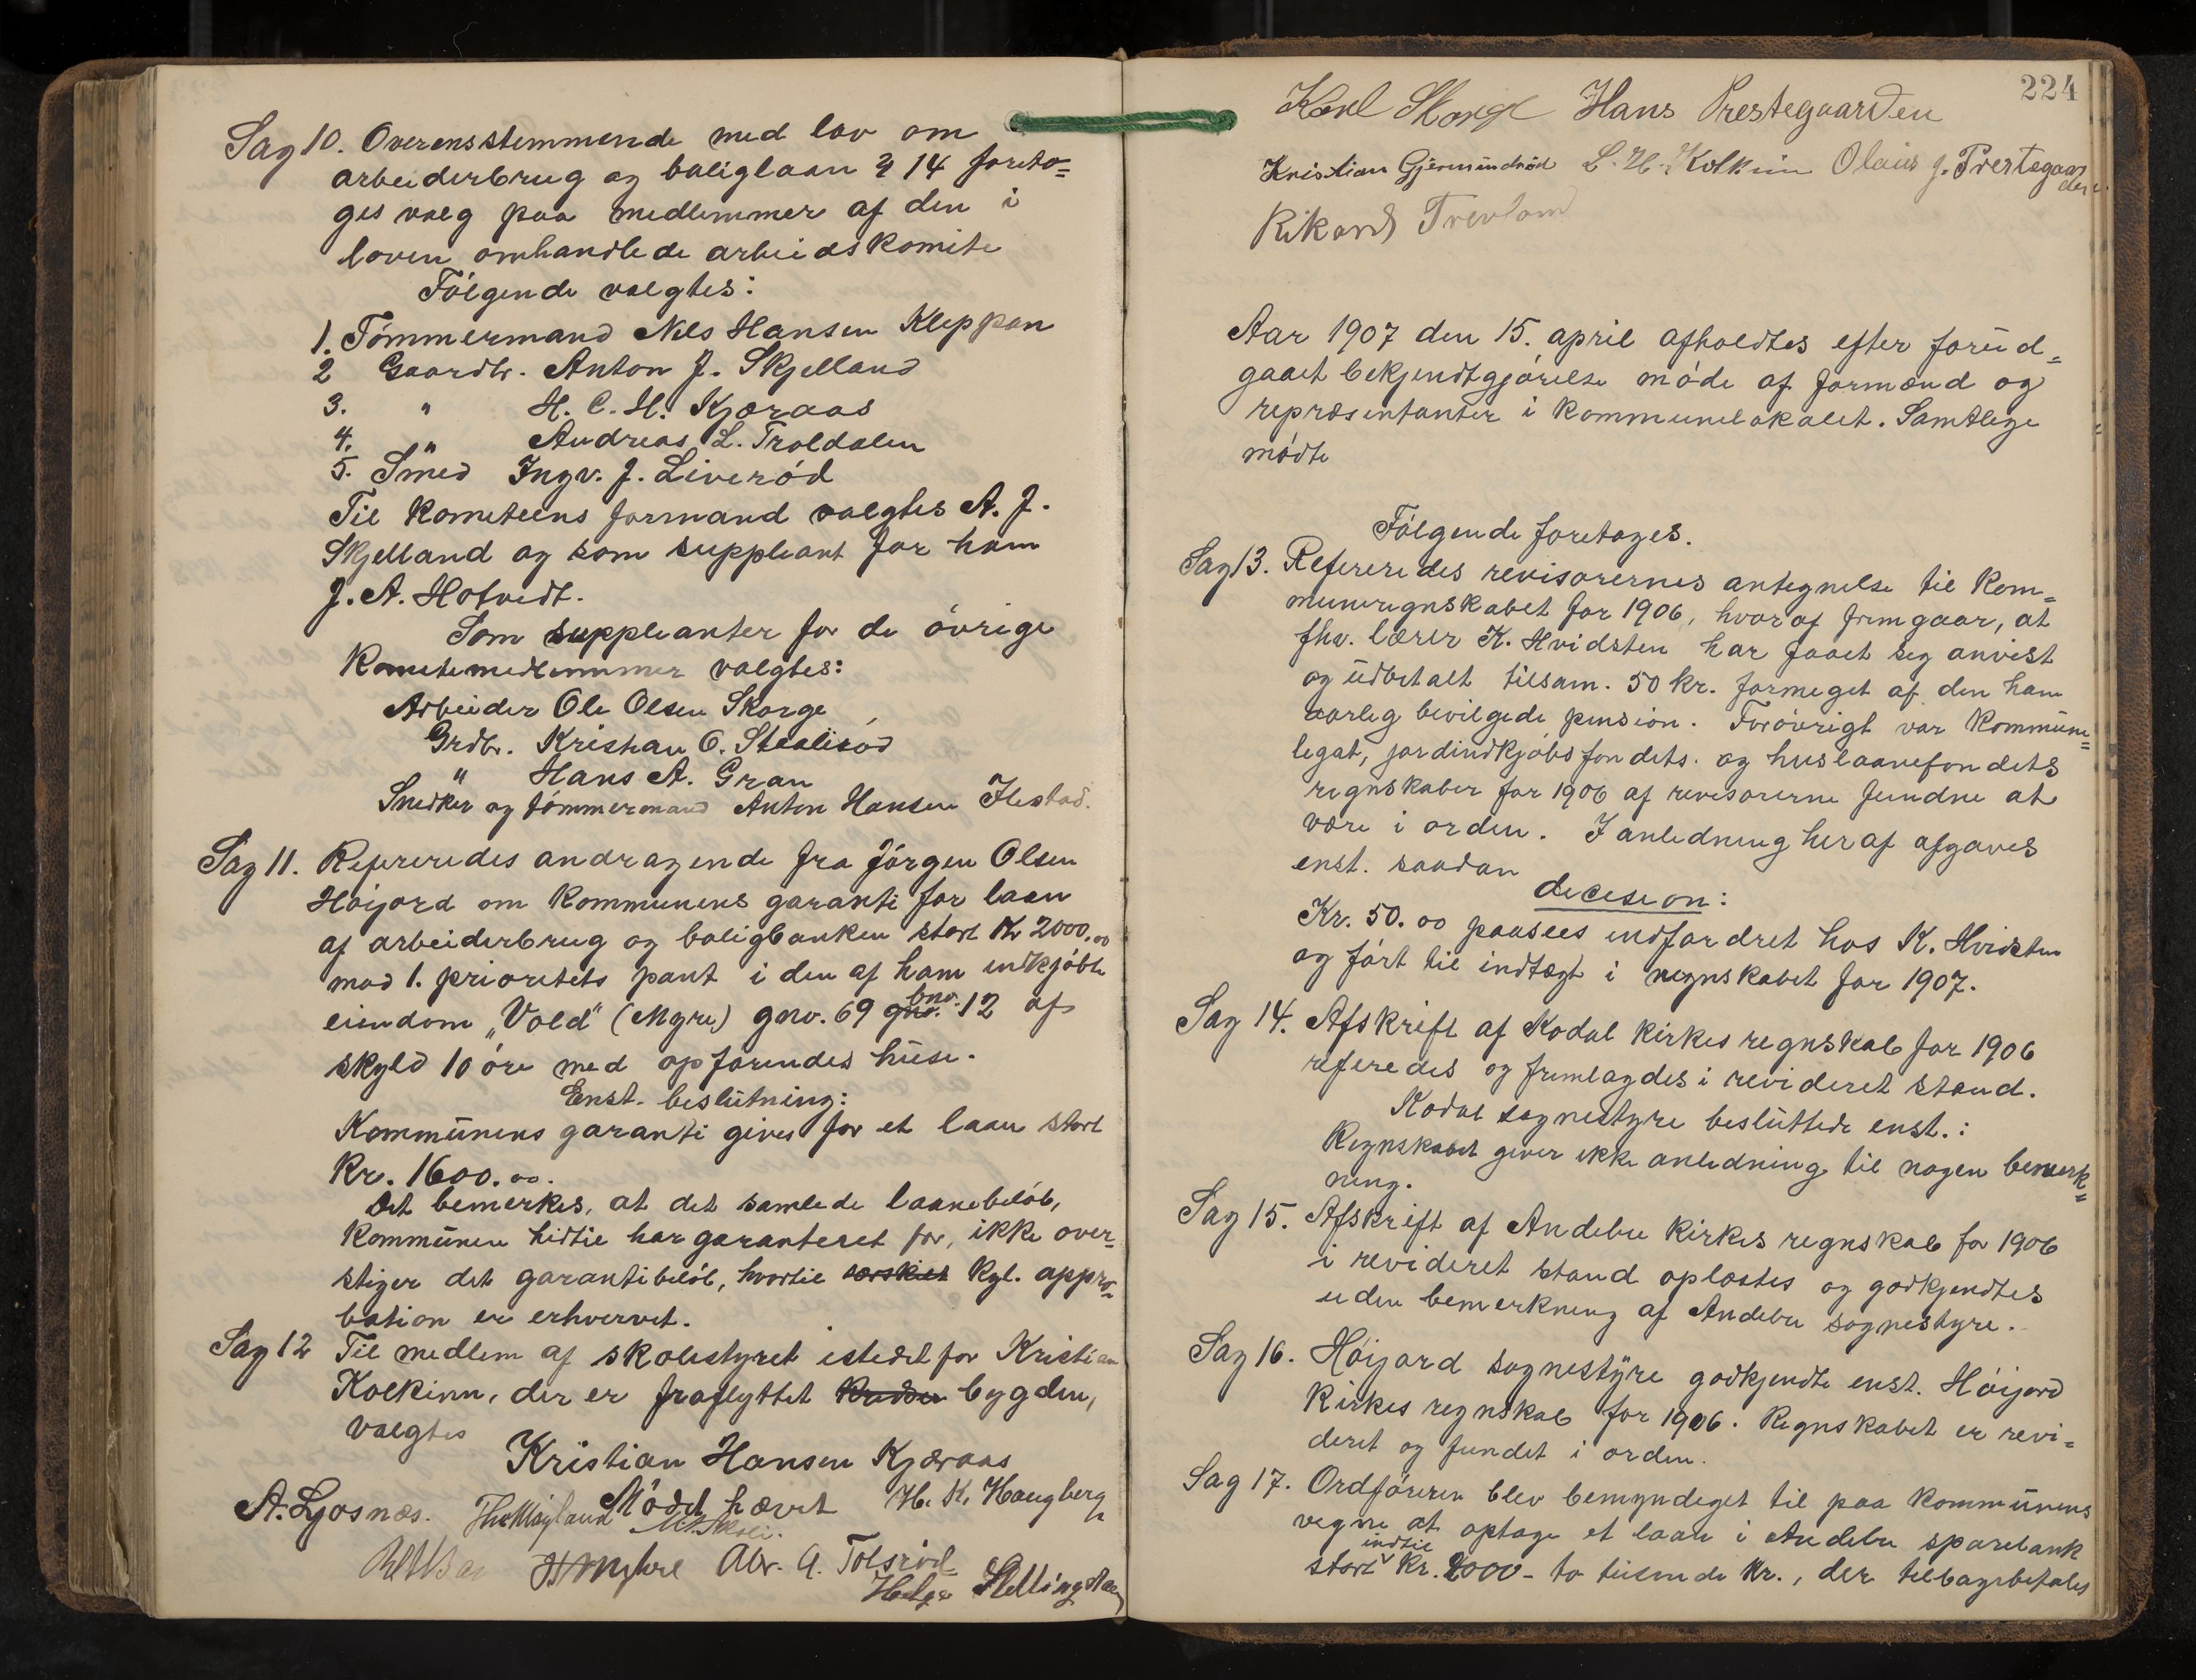 Sag 10. Overensstemmende med lov om
arbeiderbrug og boliglaan § 14 foreta=
ges valg paa medlemmer af den i
loven omhandlede arbeidskomite
Følgende valgtes:
1. Tømmermand Nils Hansen Kleppan
2 Gaardbr. Anton J. Skjelland
3. " H. C. H. Kjæraas
4. " Andreas L. Troldalen
5. Smed Ingv. J. Liverød
Til Kometeens formand valgtes A. J.
Skjelland og som suppleant for ham
J. A. Hotvedt.
Som suppleanter for de øvrige
Kometemedlemmer valgtes:
Arbeider Ole Olsen Skorge
Grdbr. Kristian O. Stealisød
" Hans A. Gran
Snedker og tømmermand Anton Hansen Ilestad.
Sag 11. Refereredes andragende fra Jørgen Olsen
Høijord om kommunens garanti for laan
af arbeiderbrug og boligbanken stort Kr 2000.00
mod 1. prioritets pant i den af ham indkjøbte
eiendom „Vold" (Myre) gno. 69 gno. bno. 12 af
skyld 10 øre med opførendes huse.
Enst. beslutning:
Kommunens garanti gives for et laan stort
Kr. 1600.00.
Det bemerkes, at det samlede laanebeløb,
Kommunen hidtil har garanteret for, ikke over=
stiger det garantibeløb, hvortil særskilt Kgl. appro=
bation er erhvervet.
Sag 12 Til medlem af skolestyret istedet for Kristian
Kolkinn, der er fraflyttet bygden,
valgtes
Kristian Hansen Kjæraas
Mødet hævet
A. Ljosnæs. H. K. Haugberg
H Myhre Abr. A. Tolsrød
Helge
224
Karl Skorge Hans Prestegaarden
Kristian Gjermundrød L. H. Kolkinn Olaus J. Prestegaarden
Rikard Trevland
Aar 1907 den 15. april afholdtes efter forud=
gaaet bekjendtgjørelse møde af formænd og
repræsentanter i kommunelokalet. Samtlige
mødte
Følgende foretoges.
Sag 13. Refereredes revisorernes antegnelse til Kom=
muneregnskabet for 1906, hvoraf fremgaar, at
fhv. lærer K. Hvidsten har faaet seg anvist
og udbetalt tilsam. 50 kr. formeget af den ham
aarlig bevilgede pension. Forøvrigt var kommune=
legat, jordindkjøbsfondets. og huslaanefondets
regnskaber for 1906 af revisorerne fundne at
være i orden. I anledning heraf afgaves
enst. saadan
decesion:
Kr. 50.00 paasees indfordret hos K. Hvidsten
og ført til indtægt i regnskabet for 1907.
Sag 14. Afskrift af Kodal kirkes regnskab for 1906
referedes og fremlagdes i revideret stand.
Kodal sognestyre besluttede enst.:
Regnskabet giver ikke anledning til nogen bemerk=
ning.
Sag 15. Afskrift af Andebu kirkes regnskab for 1906
i revideret stand oplæstes og godkjendtes
uden bemerkning af Andebu sognestyre.
Sag 16. Høijord sognestyre godkjendte enst. Høijord
kirkes regnskab for 1906. Regnskabet er revi=
deret og fundet i orden.
Sag 17. Ordføreren blev bemyndiget til paa kommunens
vegne at optage et laan i Andebu sparebank
stort indtil Kr. 2000 - to tusende Kr., der tilbagebetales